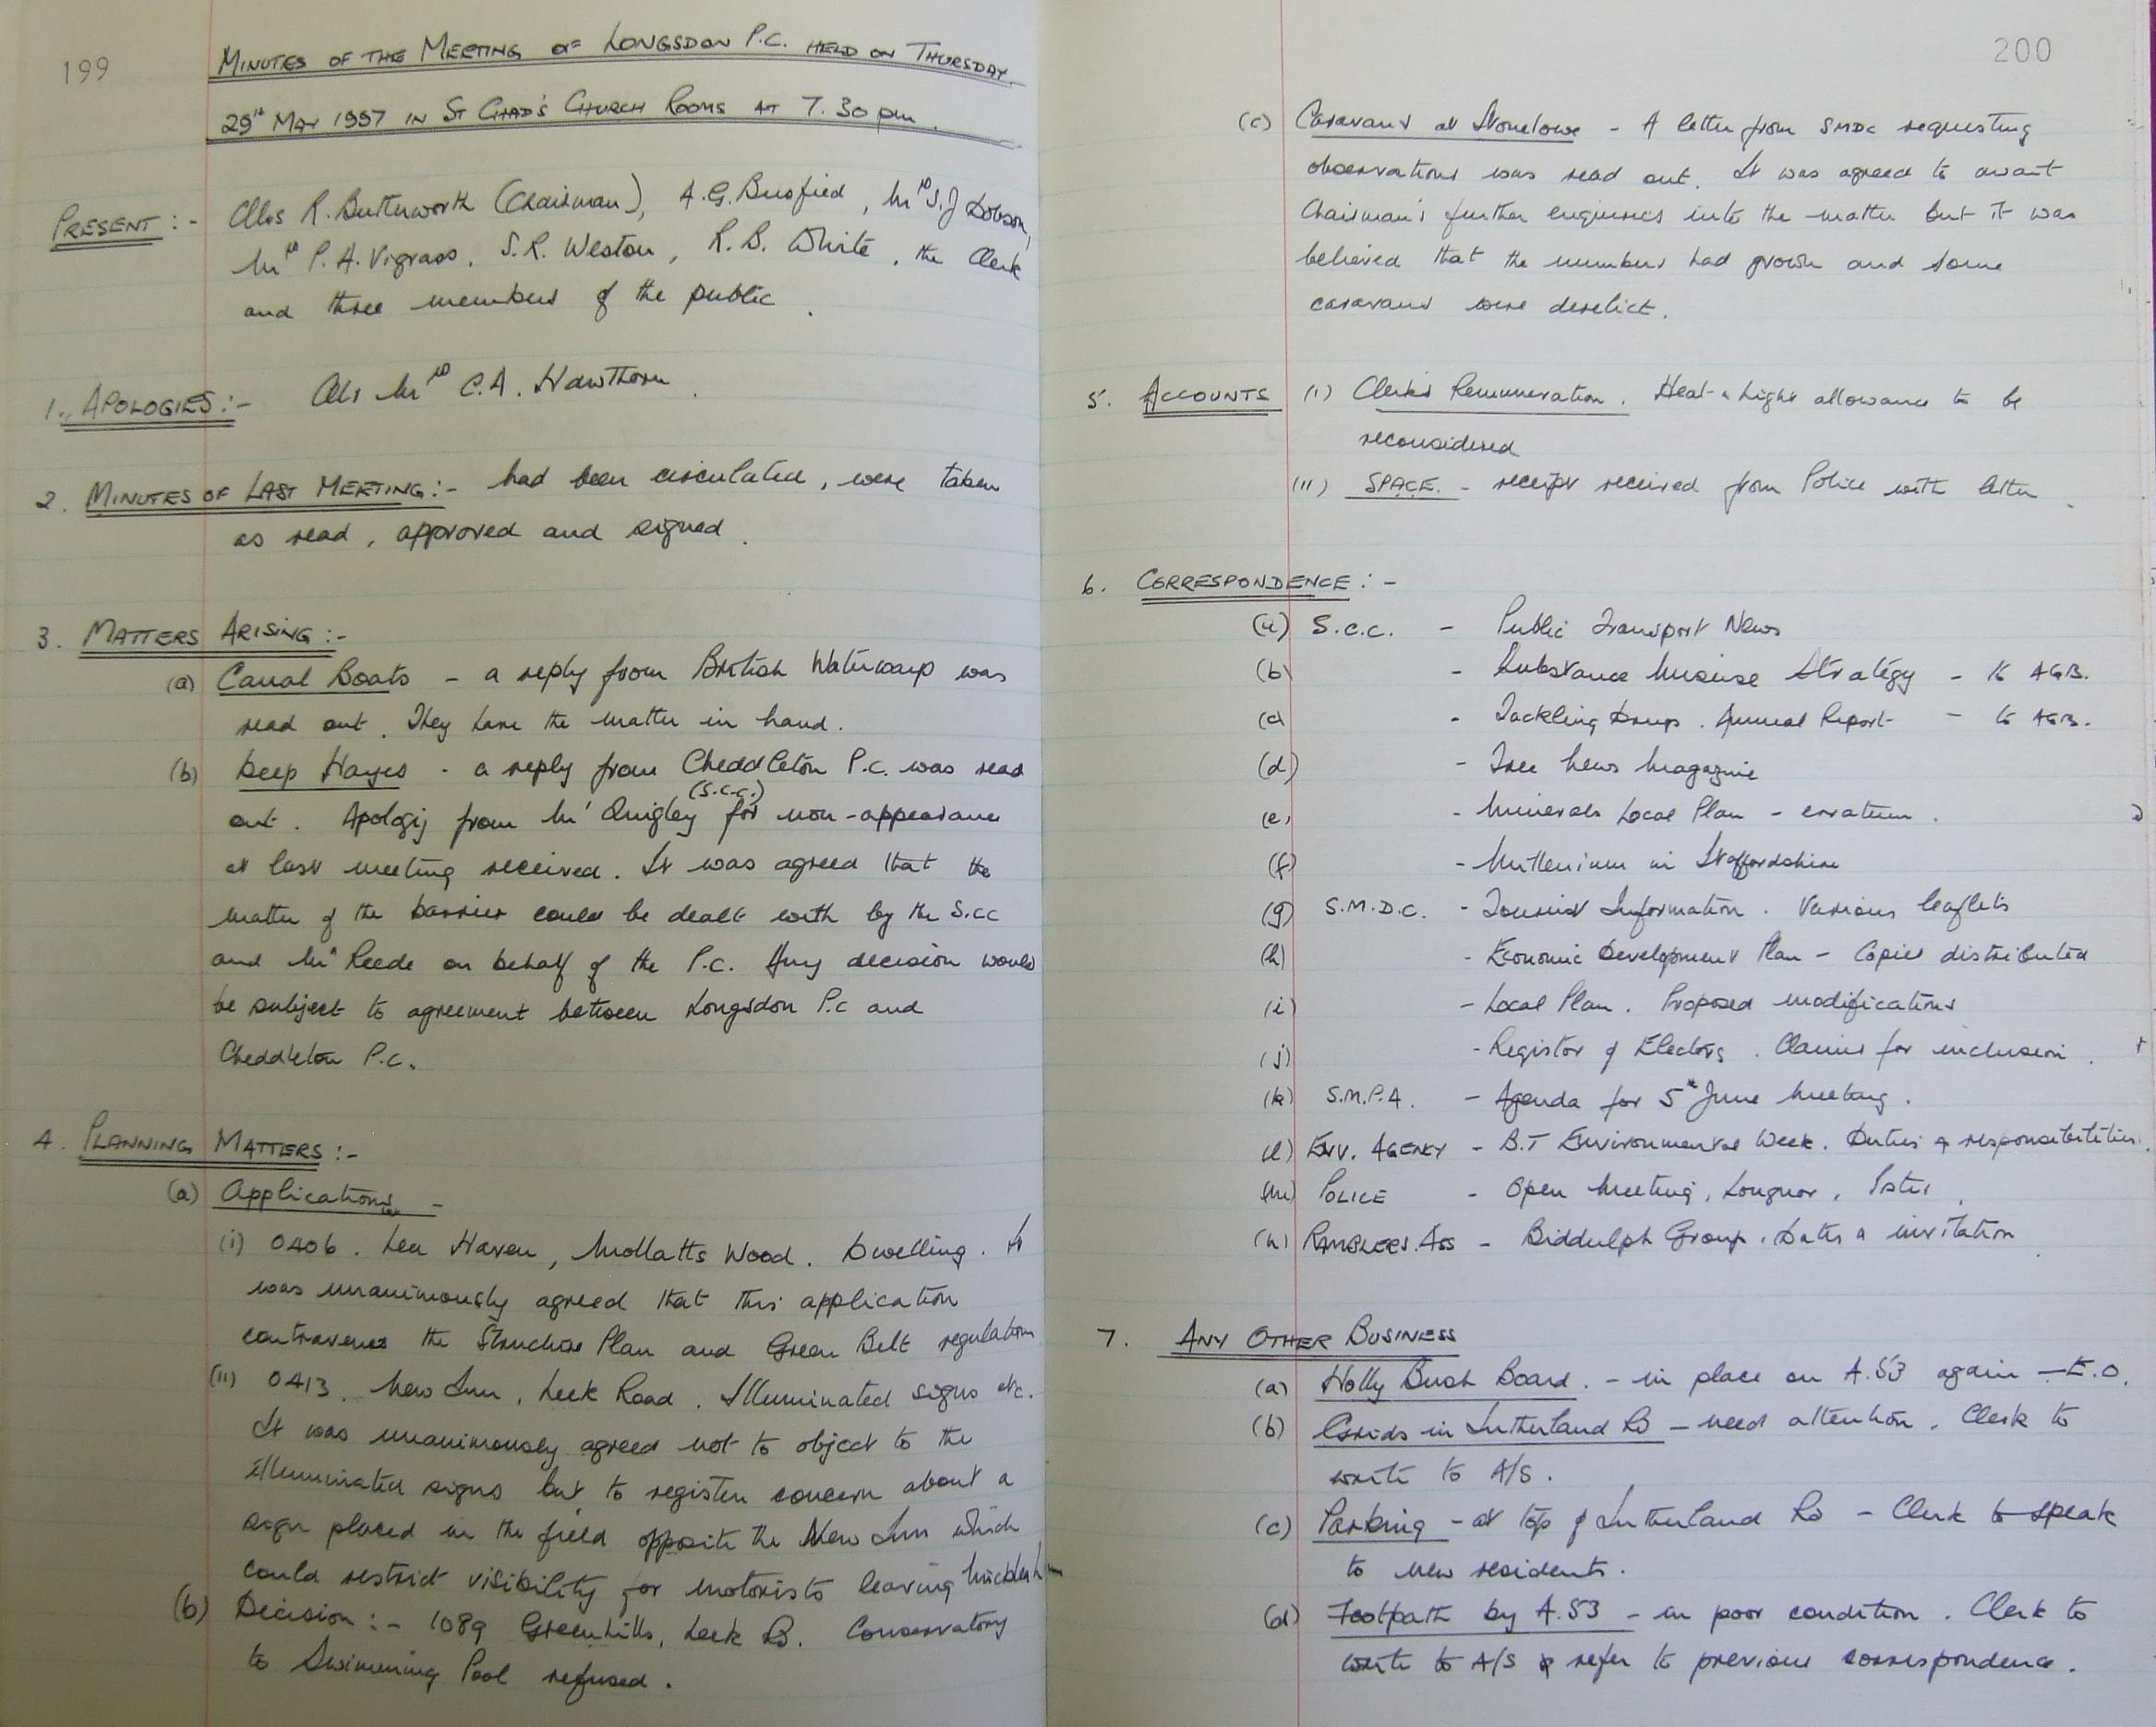 199
MINUTES OF THE MEETING OF LONGSDON P.C. HELD ON THURSDAY
29th MAY 1997 IN ST CHAD'S CHURCH ROOMS AT 7.30 pm.
PRESENT :- Cllrs R. Butterworth (Chairman), A.G. Busfied, Mrs S.J Dobson,
Mrs P.A. Vigrass, S.R. Weston, R.B. White, the Clerk
and three members of the public.
1. APOLOGIES :- Cllr Mrs C.A. Hawthorn
2. MINUTES OF LAST MEETING :- had been circulated, were taken
as read, approved and signed.
3. MATTERS ARISING :-
(a) Canal Boats - a reply from British Waterways was
read out. They have the matter in hand.
(b) Deep Hayes - a reply from Cheddleton P.C. was read
out. Apology from Mr Quigley (S.C.C.) for non-appearance
at last meeting received. It was agreed that the
matter of the barrier could be dealt with by the S.CC
and Mr Reede on behalf of the P.C. Any decision would
be subject to agreement between Longsdon P.C and
Cheddleton P.C.
4. PLANNING MATTERS :-
(a) Applications -
(i) 0406. Lea Haven, Mollatts Wood. Dwelling. It
was unanimously agreed that this application
contravenes the Structure Plan and Green Belt regulations
(ii) 0413. New Inn, Leek Road. Illuminated signs etc.
It was unanimously agreed not to object to the
illuminated signs but to register concern about a
sign placed in the field opposite the New Inn which
could restrict visibility for motorists leaving
(b) Decision :- 1089 Greenhills, Leek Rd. Conservatory
to Swimming Pool refused.
200
(c) Caravans at Stonelowe - A letter from SMDC requesting
observations was read out. It was agreed to await
Chairman's further enquiries into the matter but it was
believed that the numbers had grown and some
caravans were derelict.
5. ACCOUNTS (i) Clerks Remuneration. Heat & Light allowance to be
reconsidered
(ii) SPACE. - receipt received from Police with letter.
6. CORRESPONDENCE :-
(a) S.C.C. - Public Transport News
(b) - Substance Misuse Strategy - to AGB.
(c) - Tackling Drugs. Annual Report - to AGB.
(d) - Tree News Magazine
(e) - Minerals Local Plan - erratum.
(f) - Millenium in Staffordshire
(g) S.M.D.C. - Tourist Information. Various leaflets
(h) - Economic Development Plan - Copies distributed
(i) - Local Plan. Proposed modifications
(j) - Registor of Electors. Claims for inclusion.
(k) S.M.P.A. - Agenda for 5th June Meeting.
(l) ENV. AGENCY - B.T Environmental Week. Duties & responsibilities.
(m) POLICE - Open Meeting, Longnor,
(n) RAMBLERS. Ass - Biddulph Group. Dates & invitation
7. ANY OTHER BUSINESS
(a) Holly Bush Board. - in place on A.53 again - E.O.
(b) Grids in Sutherland Rd - need attention. Clerk to
write to A/S.
(c) Parking - at top of Sutherland Rd - Clerk to speak
to new residents.
(d) Footpath by A.53 - in poor condition. Clerk to
write to A/S & refer to previous correspondence.